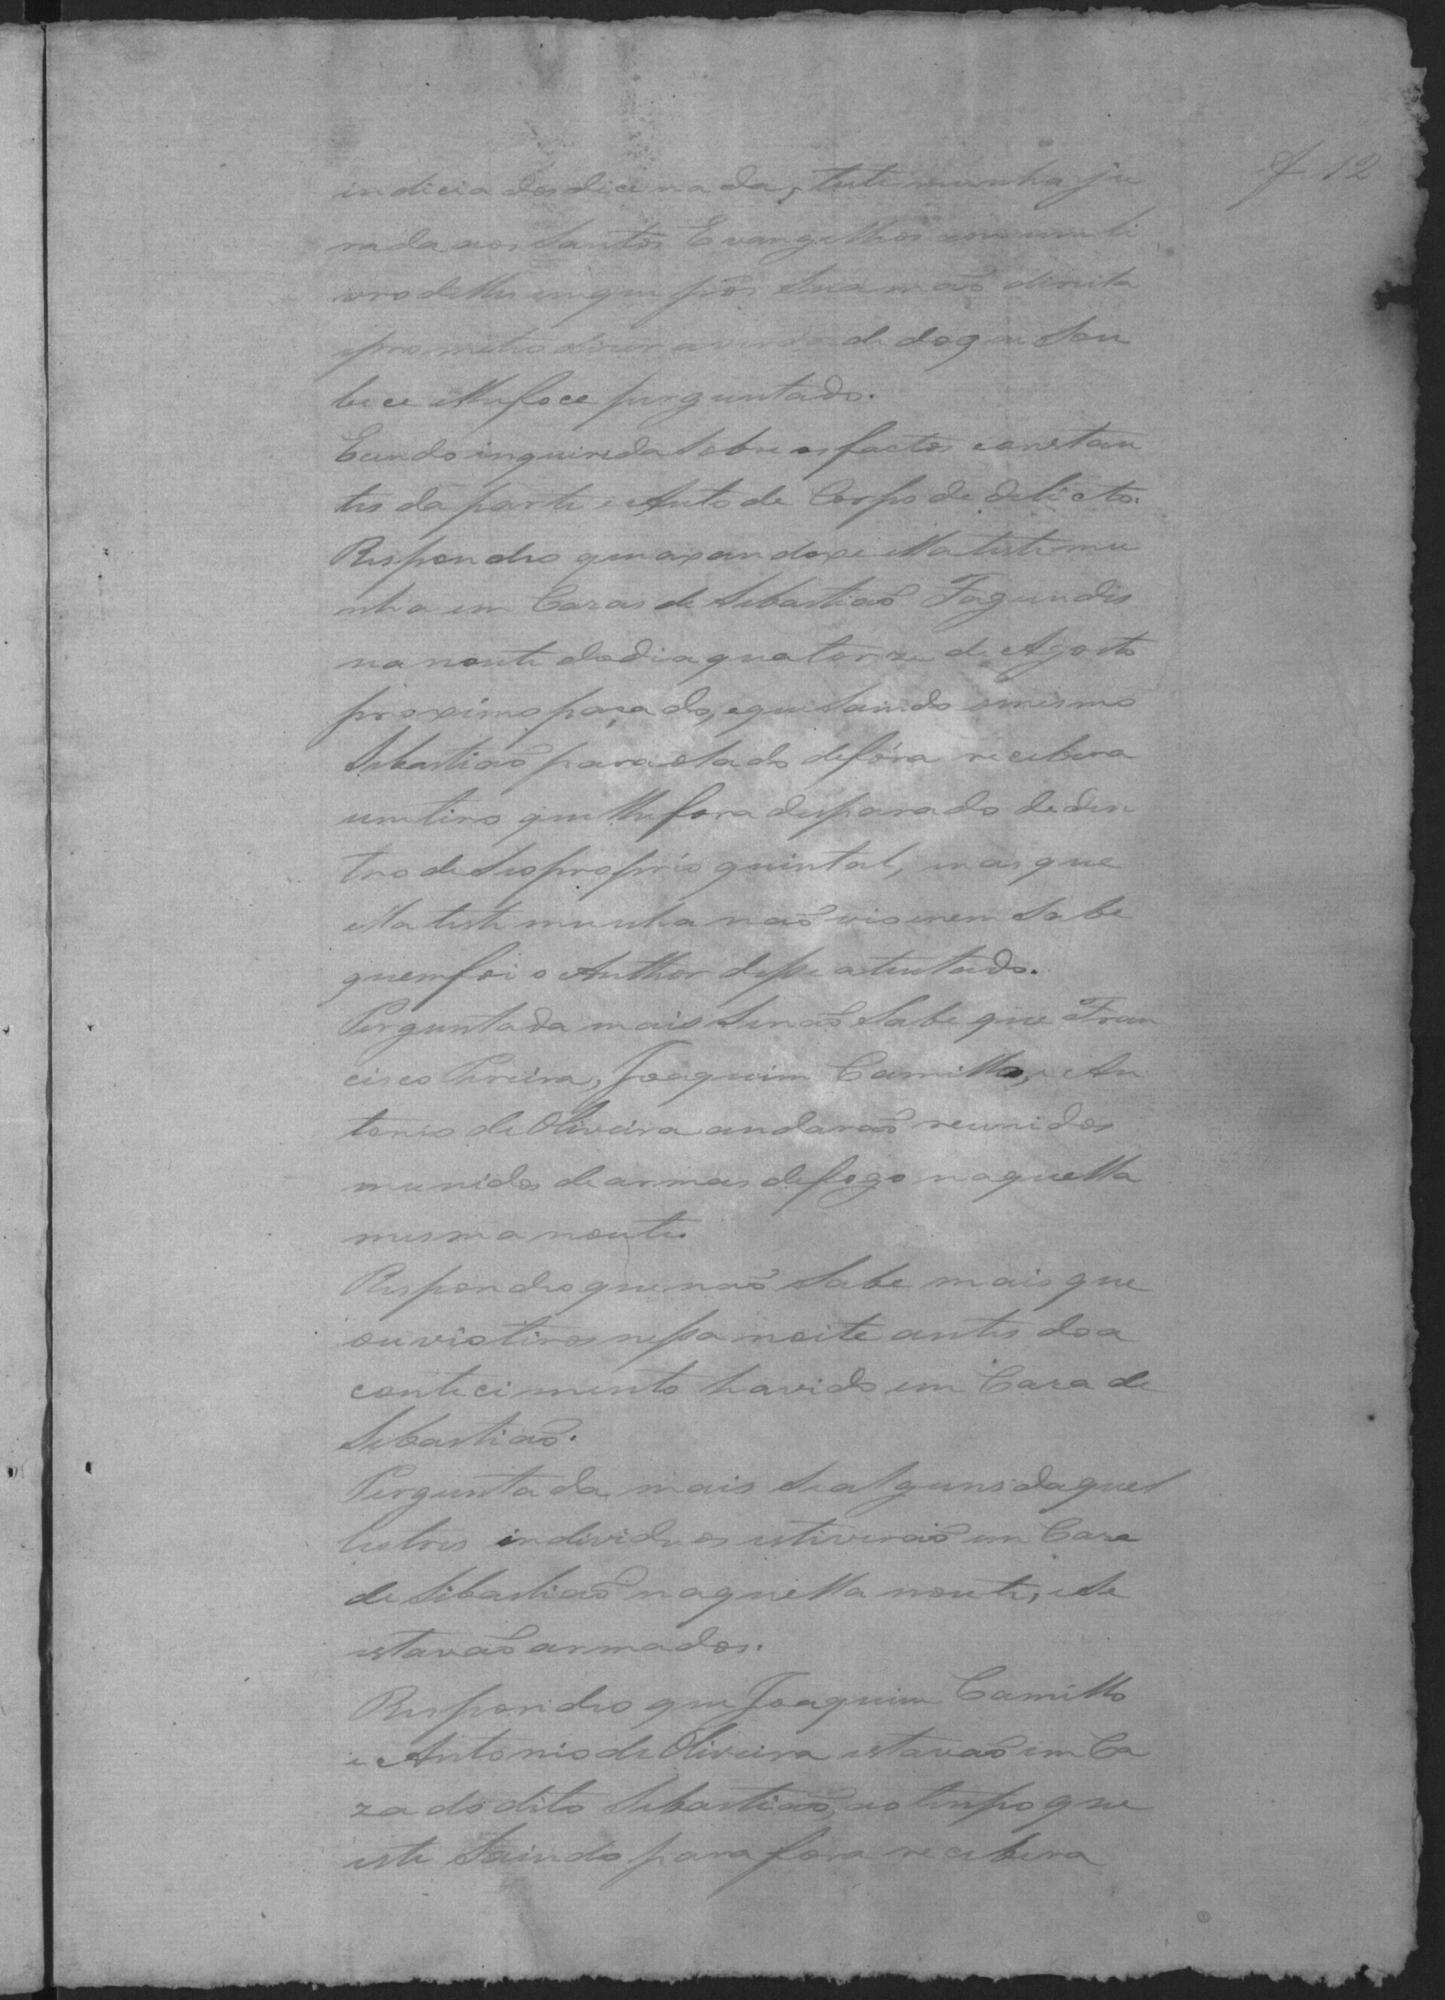 f 12
indiciados dice nada, testemunha ju
rada aos Santos Evangelhos em um li
vro delles em que pôs sua mão direita
e prometeo dizer a verdade do que sou
bece e lhe foce perguntado.
E sendo inquirida sobre os factos constan
tes da parte e Auto de Corpo de delicto.
Respondeo que axandoxe ella testemu
nha em Cazas de Sebastiaõ Fagundes
na noute do dia quatorze de Agosto
proximo paçado, e que saindo o mesmo
Sebastiaõ para o lado de fóra recebera
um tiro que lhe fora desparado de den
tro de seo proprio quintal, mas que
ella testemunha naõ vio e nem sabe
quem foi o Author desse atentado.
Perguntada mais se naõ sabe que Fran
cisco Pereira, Joaquim Camillo, e An
tonio de Oliveira andaraõ reunidos
munidos de armas de fogo naquella
mesma noute.
Respondeo que naõ sabe mais que
ouvio tiros nessa noite antes do a
contecimento havido em Caza de
Sebastiaõ.
Perguntada mais se alguns daquel
les tres individuos estiveraõ em Caza
de Sebastiaõ naquella noute, e se
estavaõ armados.
Respondeo que Joaquim Camillo
e Antonio de Oliveira estavaõ em Ca
za do dito Sebastiaõ, ao tempo que
este saindo para fora recebera